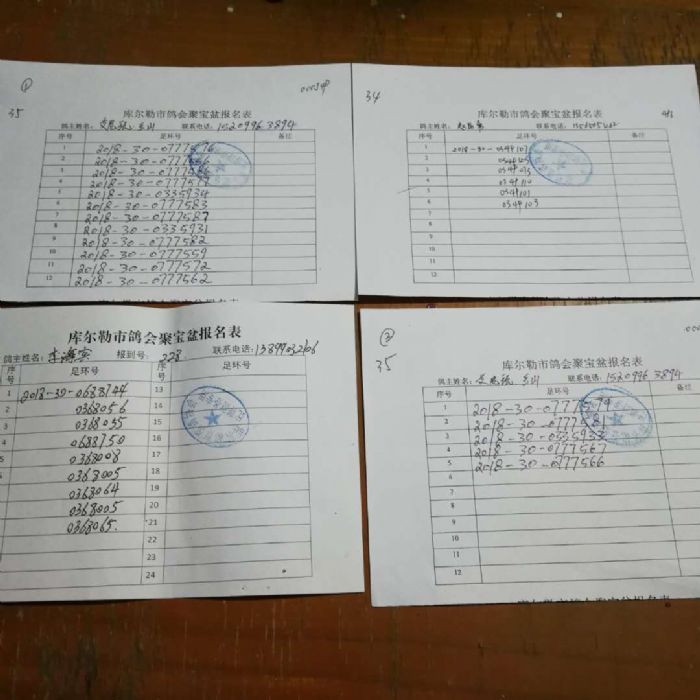 ①
35
库尔勒市鸽会聚宝盆报名表
鸽主姓名: 联系电话: 1520996 3894
序号 足环号 备注
1 2018-30-0777576
2 2018-30-0777556
3
4 2018-30-0777577
5 2018-30-0335934
6 2018-30-0777583
7 2018-30-0777587
8 2018-30-0335931
9 2018-30-0777582
10 2018-30-0777559
11 2018-30-0777572
12 2018-30-0777562
34
库尔勒市鸽会聚宝盆报名表
鸽主姓名: 联系电话:
序号 足环号 备注
1 2018-30-0344107
2
3
4 0344110
5 0344101
6 0344103
7
8
9
10
11
12
库尔勒市鸽会聚宝盆报名表
鸽主姓名: 李海宾 报到号: 228 联系电话:
序号 足环号 序号 足环号
1 2018-30-0688744 13
2 0368056 14
3 0368035 15
0688750 16
5 0368008 17
0368005 18
0368064 19
0368005 20
0368065. 21
22
23
24
②
35
库尔勒市鸽会聚宝盆报名表
鸽主姓名: 联系电话: 1520996 3894
序号 足环号 备注
1 2018-30-0777579
2 2018-30-0777581
3 2018-30-0335933
4 2018-30-0777567
5 2018-30-0777566
6
7
8
9
10
11
12